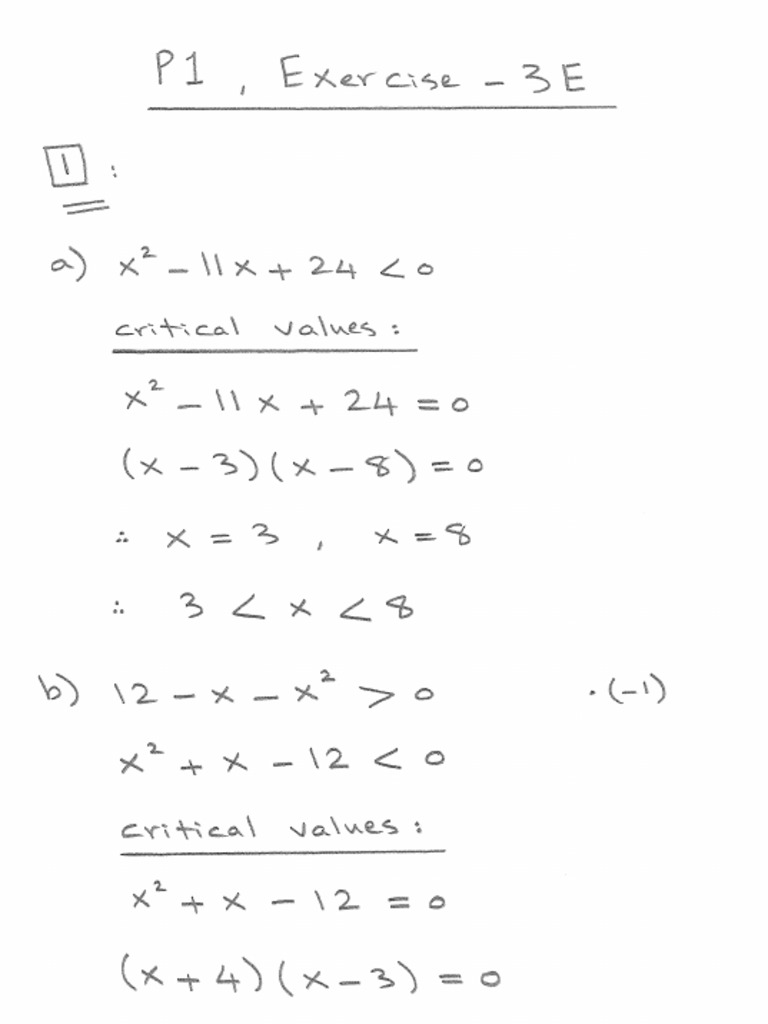 P1, Exercise - 3E
1 :
a) x² - 11x + 24 < 0
critical values:
x² - 11x + 24 = 0
(x - 3)(x - 8) = 0
∴ x = 3 , x = 8
∴ 3 < x < 8
b) 12 - x - x² > 0 · (-1)
x² + x - 12 < 0
critical values:
x² + x - 12 = 0
(x + 4)(x - 3) = 0